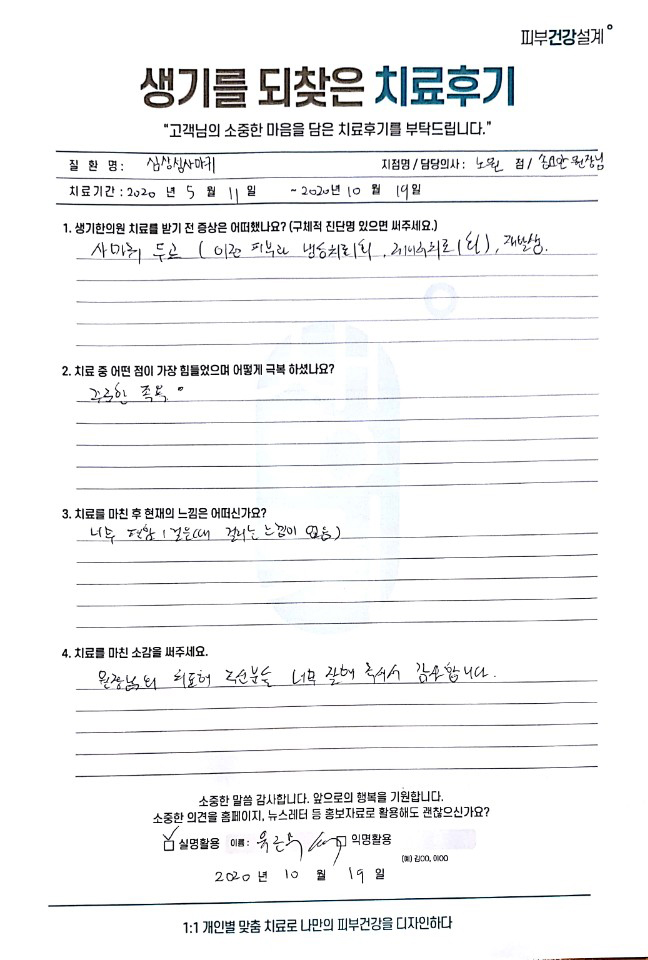 피부건강설계
생기를 되찾은 치료후기
"고객님의 소중한 마음을 담은 치료후기를 부탁드립니다."
질 환 명 : 심상성사마귀 지점명 / 담당의사 : 노원 점 / 원장님
치료기간 : 2020 년 5 월 11 일 ~ 2020년 10 월 19일
1. 생기한의원 치료를 받기 전 증상은 어떠했나요? (구체적 진단명 있으면 써주세요.)
사마귀 두고 (이전 피부과 냉동치료1회, 레이저치료1회), 재발생.
2. 치료 중 어떤 점이 가장 힘들었으며 어떻게 극복 하셨나요?
꾸준한 족욕.
3. 치료를 마친 후 현재의 느낌은 어떠신가요?
너무 편함 (걸을때 걸리는 느낌이 없음)
4. 치료를 마친 소감을 써주세요.
원장님외 치료해 주신분들 너무 잘해 주셔서 감사합니다.
소중한 말씀 감사합니다. 앞으로의 행복을 기원합니다.
소중한 의견을 홈페이지, 뉴스레터 등 홍보자료로 활용해도 괜찮으신가요?
실명활용 이름 : 익명활용
(예) 김OO, 이OO
2020 년 10 월 19 일
1:1 개인별 맞춤 치료로 나만의 피부건강을 디자인하다